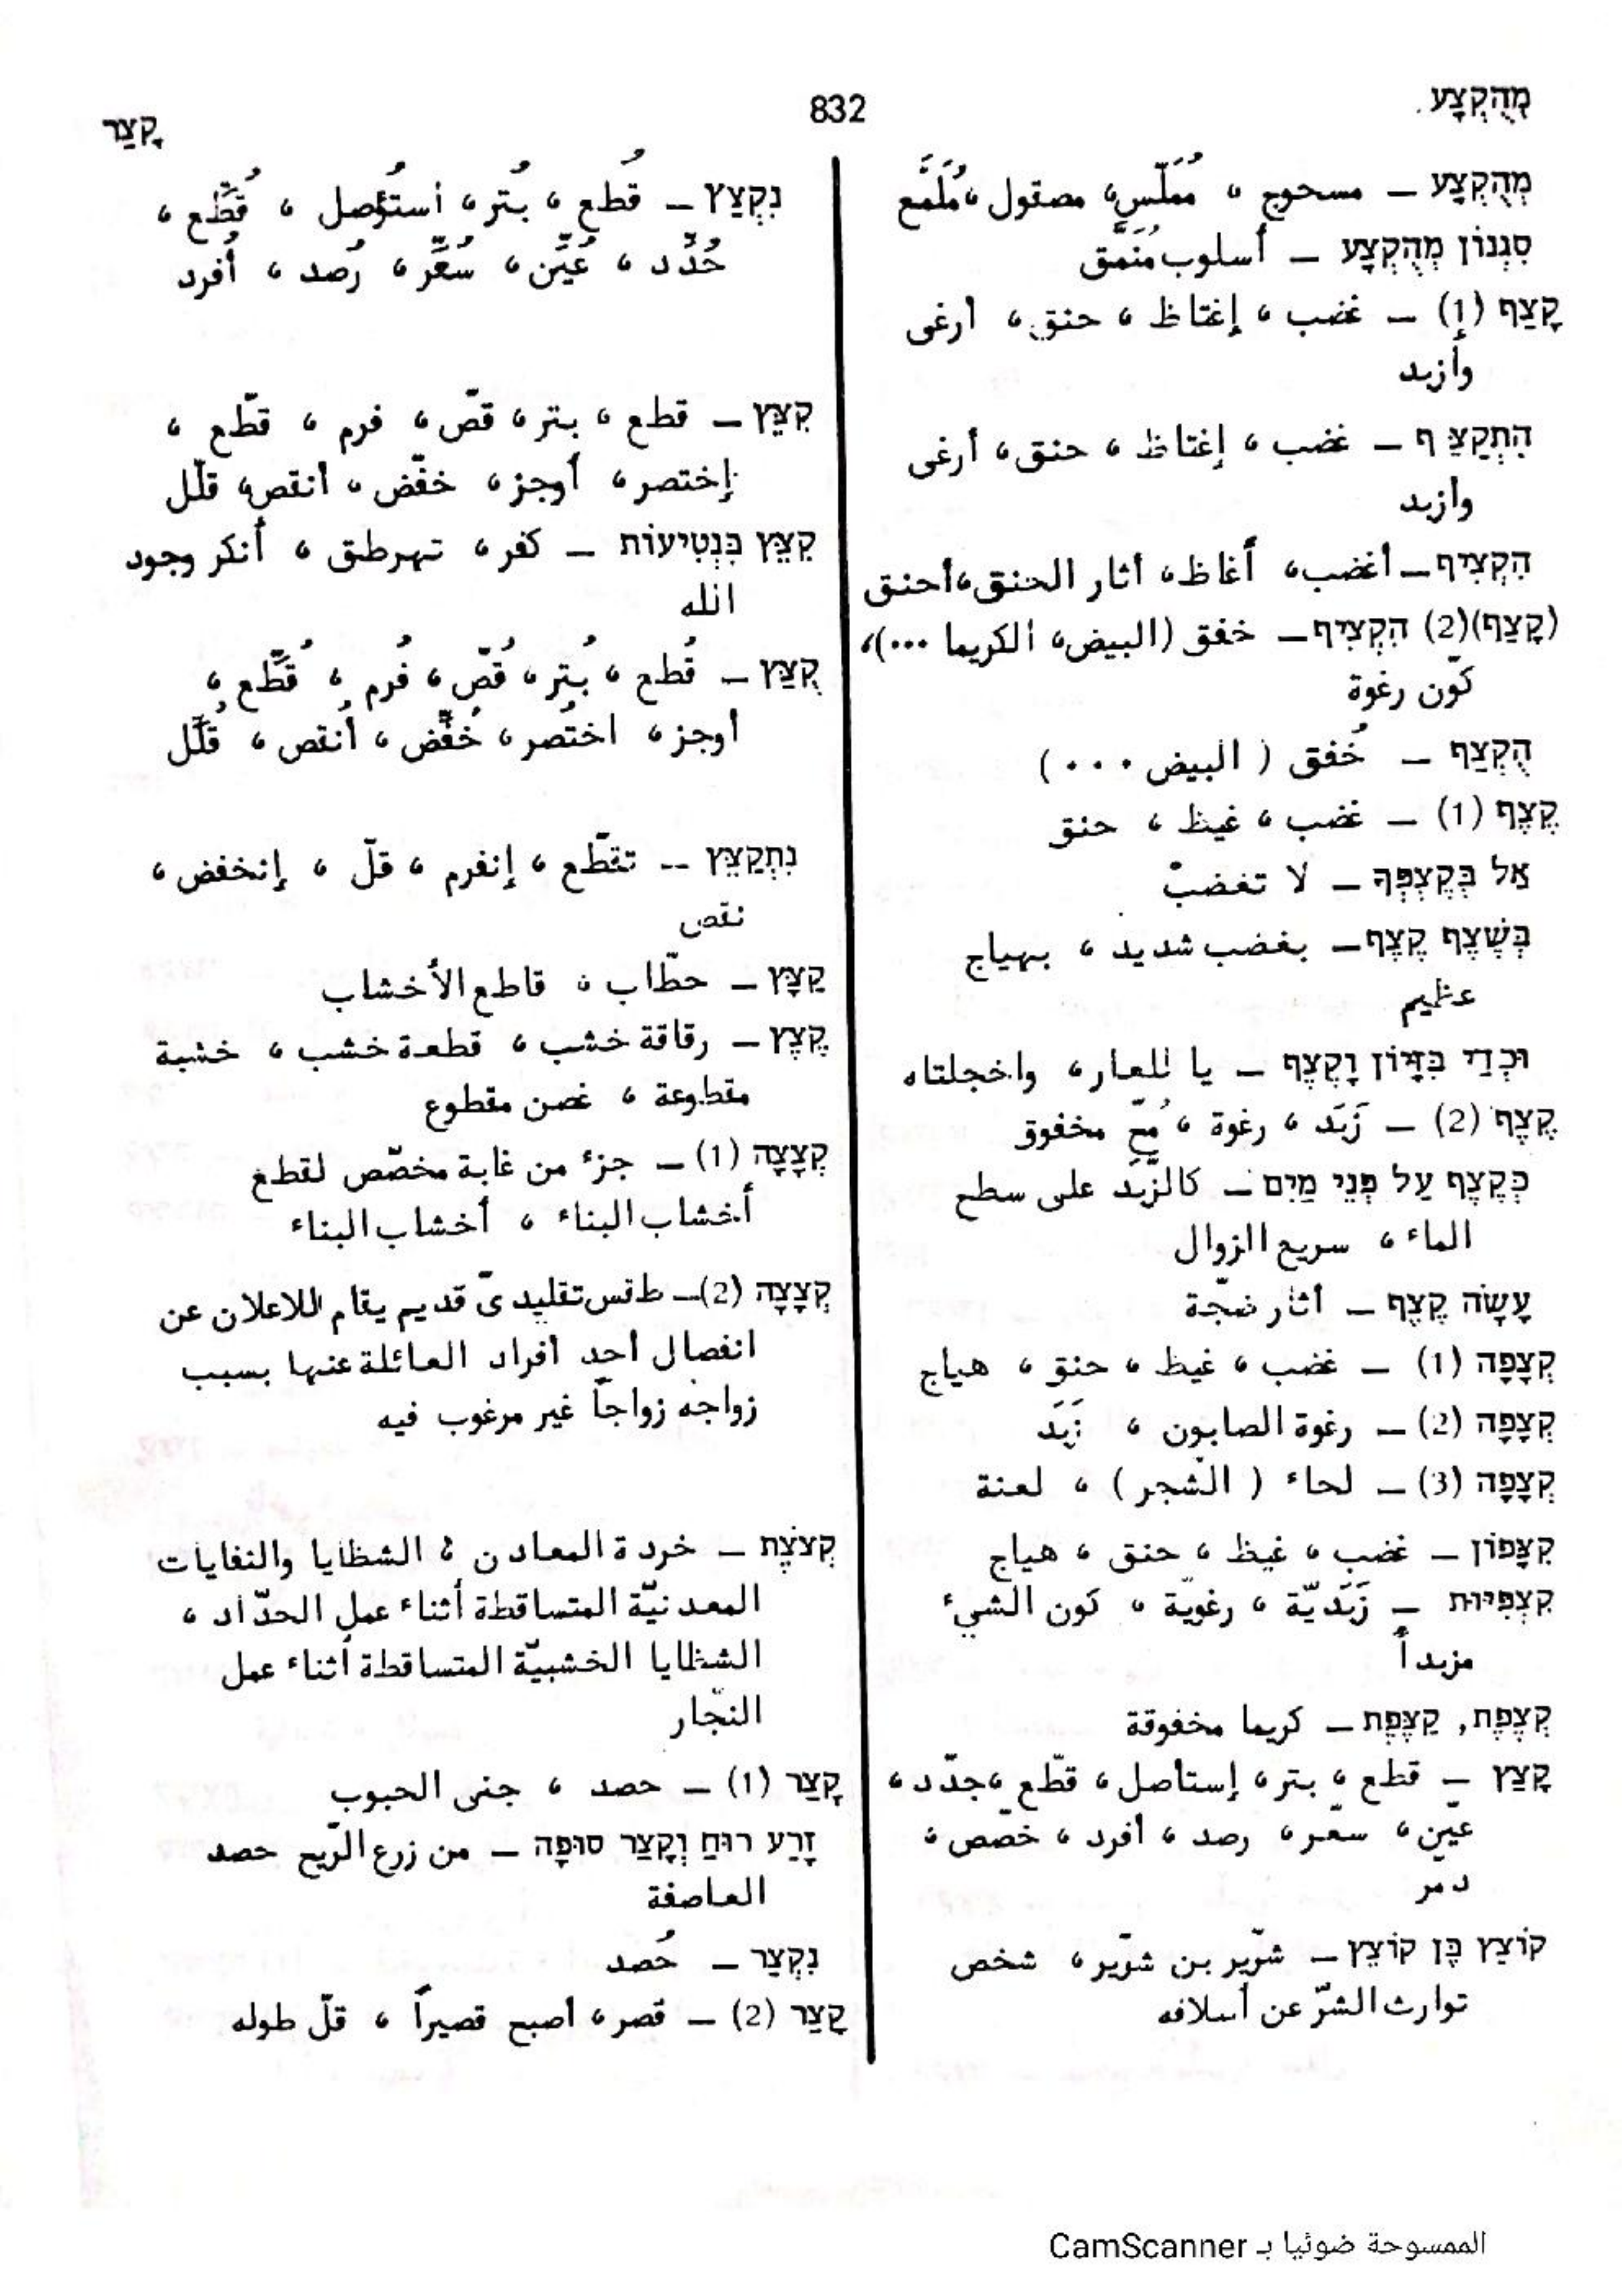 מְהֻקְצָע
832
קָצַר
מְהֻקְצָע – مسحوج ، مُمَلّس، مصقول ،مُلَمَّع
סִגְנוֹן מְהֻקְצָע – أسلوب مُنَمَّق
קָצַף (1) – غضب ، إغتاظ ، حنق ، أرغى
وأزبد
הִתְקַצֵּף – غضب ، إغتاظ ، حنق، أرغى
وأزبد
הִקְצִיף – أغضب، أغاظ، أثار الحنق،أحنق
(קָצַף)(2) הִקְצִיף – خفق (البيض، الكريما ...)،
كوّن رغوة
הֻקְצַף – خُفق ( البيض ... )
קֶצֶף (1) – غضب ، غيظ ، حنق
אַל בְּקֶצְפְּךָ – لا تغضبْ
בְּשֶׁצֶף קֶצֶף – بغضب شديد ، بهياج
عظيم
וּכְדַי בִּזָּיוֹן וָקֶצֶף – يا للعار، واخجلتاه
קֶצֶף (2) – زَبَد ، رغوة ، مُحّ مخفوق
כְּקֶצֶף עַל פְּנֵי מַיִם – كالزَّبَد على سطح
الماء ، سريع الزوال
עָשָׂה קֶצֶף – أثار ضجّة
קְצָפָה (1) – غضب ، غيظ ، حنق ، هياج
קְצָפָה (2) – رغوة الصابون ، زَبَد
קְצָפָה (3) – لحاء ( الشّجر ) ، لعنة
קִצָּפוֹן – غضب ، غيظ ، حنق ، هياج
קִצְפִּיּוּת – زَبَديّة ، رغويّة ، كَون الشيء
مزبداً
קְצֶפֶת, קַצֶּפֶת – كريما مخفوقة
קָצַץ – قطع ، بتر، إستأصل، قطّع ،حدّد،
عيّن، سعّر، رصد ، أفرد ، خصّص ،
دمر
קוֹצֵץ בֶּן קוֹצֵץ – شرّير بن شرّير، شخص
توارث الشرّ عن أسلافه
נִקְצַץ – قُطع ، بُتر، أستُؤصل ، قُطِّع ،
حُدِّد ، عُيِّن، سُعِّر، رُصد ، أُفرد
קִצֵּץ – قطع ، بتر، قصّ، فرم ، قطّع ،
إختصر، أوجز، خفّض ، أنقص، قلّل
קִצֵּץ בִּנְטִיעוֹת – كفر، تهرطق ، أنكر وجود
الله
קֻצַּץ – قُطع ، بُتر، قُصّ، فُرم ، قُطِّع ،
أوجز، اختُصر، خُفِّض ، أُنقص ، قُلِّل
נִתְקַצֵּץ -- تقطّع ، إنفرم ، قلّ ، إنخفض ،
نقص
קַצָּץ – حطّاب ، قاطع الأخشاب
קֶצֶץ – رقاقة خشب ، قطعة خشب ، خشبة
مقطوعة ، غصن مقطوع
קְצָצָה (1) – جزء من غابة مخصّص لقطع
أخشاب البناء ، أخشاب البناء
קְצָצָה (2) – طقس تقليديّ قديم يقام للاعلان عن
انفصال أحد أفراد العائلة عنها بسبب
زواجه زواجاً غير مرغوب فيه
קְצֹצֶת – خردة المعادن ، الشظايا والنفايات
المعدنيّة المتساقطة أثناء عمل الحدّاد ،
الشظايا الخشبيّة المتساقطة أثناء عمل
النجّار
קָצַר (1) – حصد ، جنى الحبوب
זָרַע רוּחַ וְקָצַר סוּפָה – من زرع الرّيح حصد
العاصفة
נִקְצַר – حُصد
קָצַר (2) – قصر، أصبح قصيراً ، قلّ طوله
الممسوحة ضوئيا بـ CamScanner